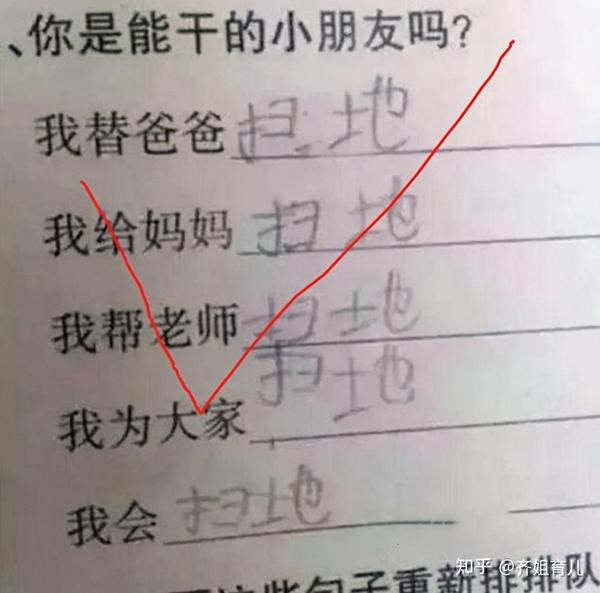 、你是能干的小朋友吗?
我替爸爸扫地
我给妈妈扫地
我帮老师扫地
我为大家扫地
我会扫地
这些句子重新排排队
知乎 @齐姐育儿